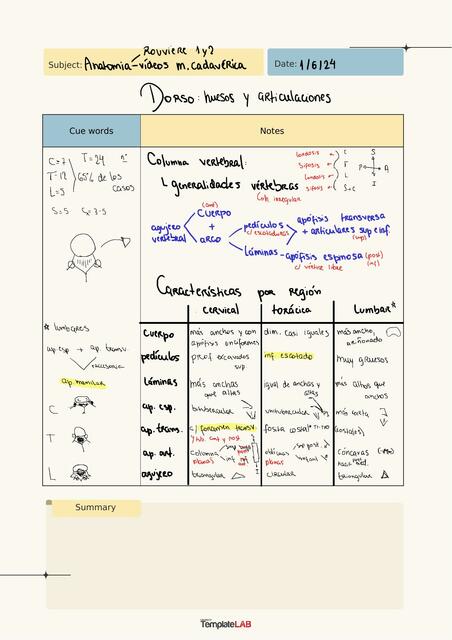 Rouviere 1 y 2
Subject: Anatomia-vídeos m. cadavérica
Date: 1/6/24
Dorso: huesos y articulaciones
Cue words
Notes
C=7
T=12
L=5
T=24
65% de los
casos
S=5
Columna vertebral:
L generalidades vértebras
Col. irregular
lordosis C
sifosis T
lordosis L
sifosis S+C
S
P A
I
(ant)
agujero
vertebral
cuerpo
+
arco
pedículos
c/ escotaduras
láminas
apófisis transversa
+ articulares sup e inf.
apófisis espinosa (post)
c/ vértice libre (inf)
Características por región
cervical
torácica
lumbar*
* lumbares
ap. esp + ap. transv.
accesoria
ap. mamilar
C
T
L
cuerpo
más anchos y con
apófisis unciformes
dim. casi iguales
más ancho,
reñonado
pedículos
prof escavados
sup.
inf escotado
muy gruesos
láminas
más anchas
que altas
igual de anchas y
altas
más altas que
anchas
ap. esp.
bitubercular
unituberculur
más corta
ap. trans.
c/ foramen transv.
y tub. ant y post.
fosita costal T1-T10
(costales)
ap. art.
columna
planas
oblicuas
planas
cóncavas
agujero
triangular
circular
triangular
Summary
TemplateLAB